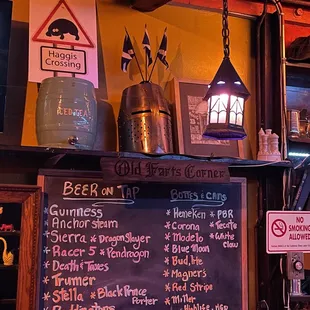 HAGGIS
Crossing
ICED TEA
Old Farts Corner
BEER ON TAP
* Guinness
* Anchor steam
* Sierra * Dragon Slayer
* Racer 5 * Pendragon
* Death & Taxes
* Trumer
* Stella * Black Prince
Porter
Bottles & Cans
* Heineken * PBR
* Corona * Tecate
* Modelo * White
Claw
* Blue Moon
* Bud, lite
* Magners
* Red Stripe
* Miller
Highlife
NO SMOKING
ALLOWED
NO SMO